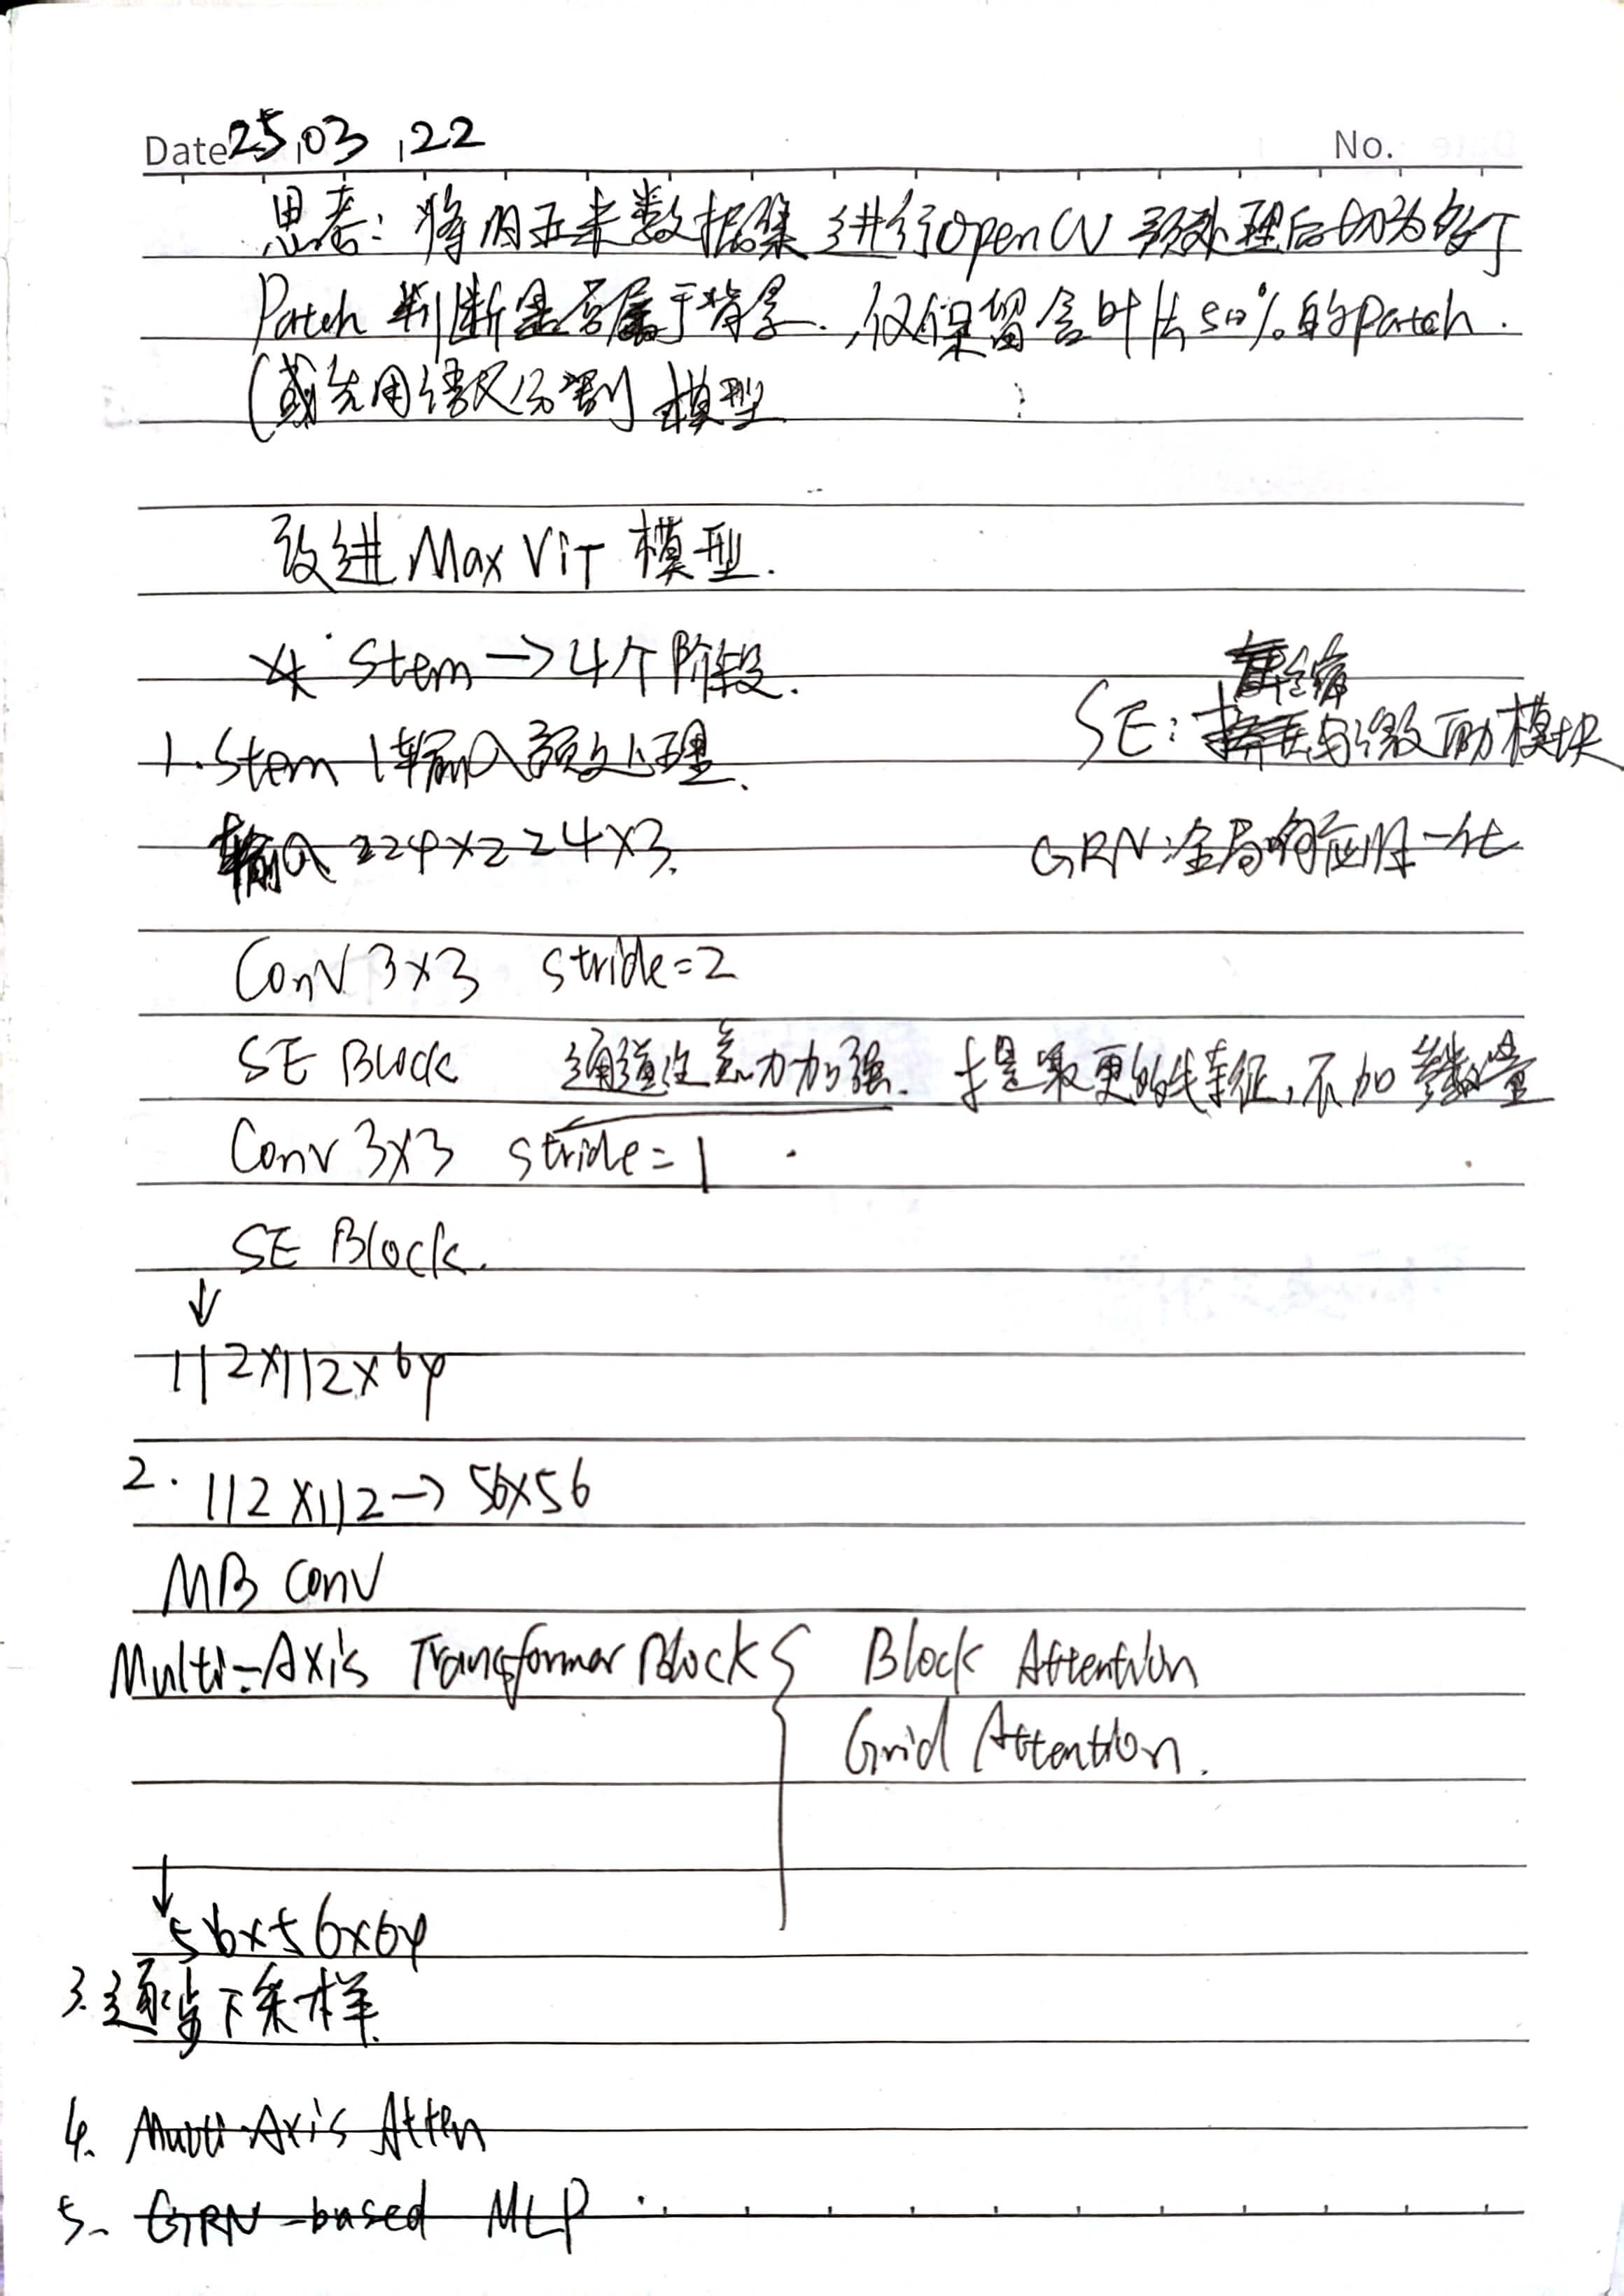 Date 25.03.22 No.
思考：将用玉米数据集进行OpenCV 预处理后切为多个
Patch 判断是否属于背景．,仅保留含叶片50%的patch．
(或先用语义分割) 模型
改进 MaxViT 模型．
Stem → 4个阶段．
1.Stem 输入预处理．
压缩
SE：与激励模块
输入 224×224×3.
GRN：全局响应归一化
Conv 3×3 stride=2
SE Block 通道注意力加强．提取更的特征，不加参数量
Conv 3×3 stride=1
SE Block.
↓
112×112×64
2. 112×112→56×56
MB Conv
Multi-Axis Transformer Block { Block Attention
Grid Attention.
↓
56×56×64
3.逐步下采样．
4. Multi-Axis Atten
5. GRN-based MLP